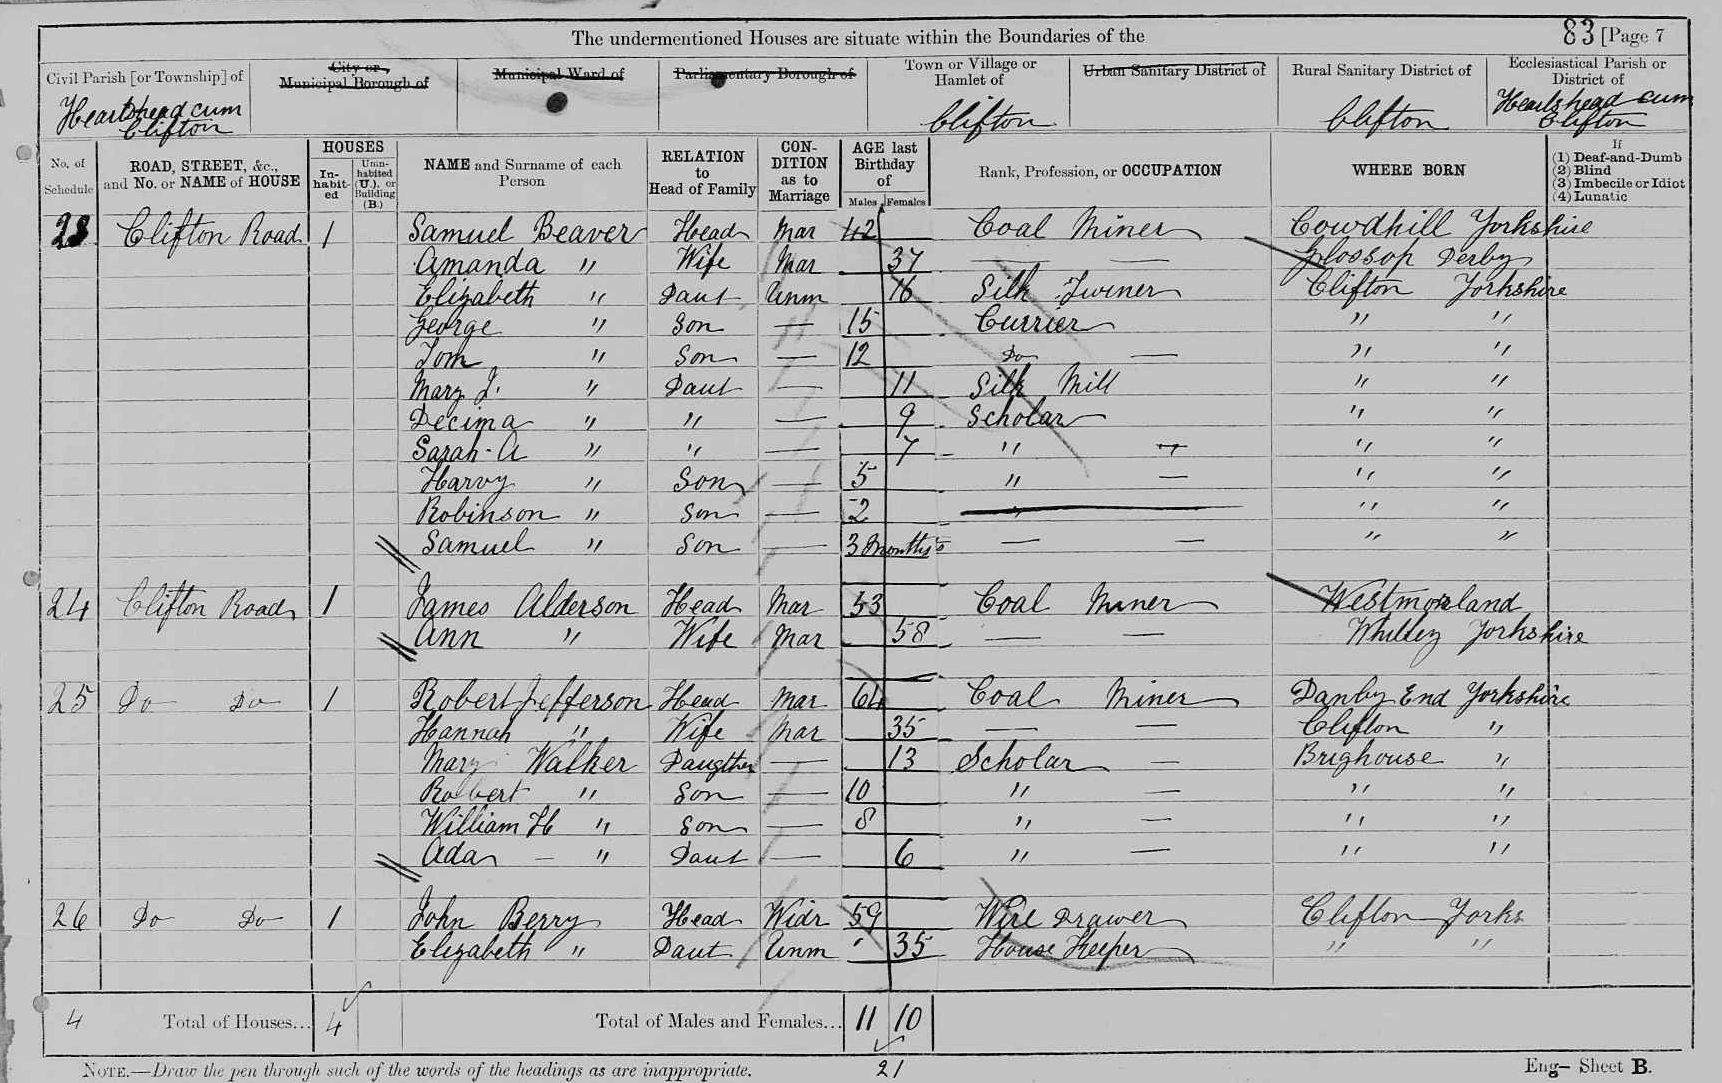 83 [Page 7
The undermentioned Houses are situate within the Boundaries of the
Civil Parish [or Township] of
City or Municipal Borough of
Municipal Ward of
Parliamentary Borough of
Town or Village or Hamlet of
Urban Sanitary District of
Rural Sanitary District of
Ecclesiastical Parish or District of
Heartshead cum Clifton
Clifton
Clifton
Heartshead cum Clifton
No. of Schedule
ROAD, STREET, &c., and No. or NAME of HOUSE
HOUSES
In-habit-ed
Unin-habited (U.), or Building (B.)
NAME and Surname of each Person
RELATION to Head of Family
CON-DITION as to Marriage
AGE last Birthday of
Males Females
Rank, Profession, or OCCUPATION
WHERE BORN
If
(1) Deaf-and-Dumb
(2) Blind
(3) Imbecile or Idiot
(4) Lunatic
23 Clifton Road 1 Samuel Beaver Head Mar 42 Coal Miner Cowdhill Yorkshire
Amanda " Wife Mar 37 — — Glossop Derby
Elizabeth " Daut Unm 16 Silk Twiner Clifton Yorkshire
George " Son — 15 Currier " "
Tom " Son — 12 Do — " "
Mary J. " Daut — 11 Silk Mill " "
Decima " " — 9 Scholar " "
Sarah A " " — 7 " — " "
Harvy " Son — 5 " — " "
Robinson " Son — 2 " " "
Samuel " Son — 3 months — — " "
24 Clifton Road 1 James Alderson Head Mar 53 Coal Miner Westmorland
Ann " Wife Mar 58 — — Whitley Yorkshire
25 Do Do 1 Robert Jefferson Head Mar 64 Coal Miner Danby End Yorkshire
Hannah " Wife Mar 35 — — Clifton "
Mary Walker Daugther — 13 Scholar — Brighouse "
Robert " Son — 10 " — " "
William H " Son — 8 " — " "
Ada — " Daut — 6 " — " "
26 Do Do 1 John Berry Head Widr 59 Wire Drawer Clifton Yorks
Elizabeth " Daut Unm 35 House Keeper " "
4 Total of Houses... 4 Total of Males and Females... 11 10
21
NOTE.—Draw the pen through such of the words of the headings as are inappropriate.
Eng— Sheet B.